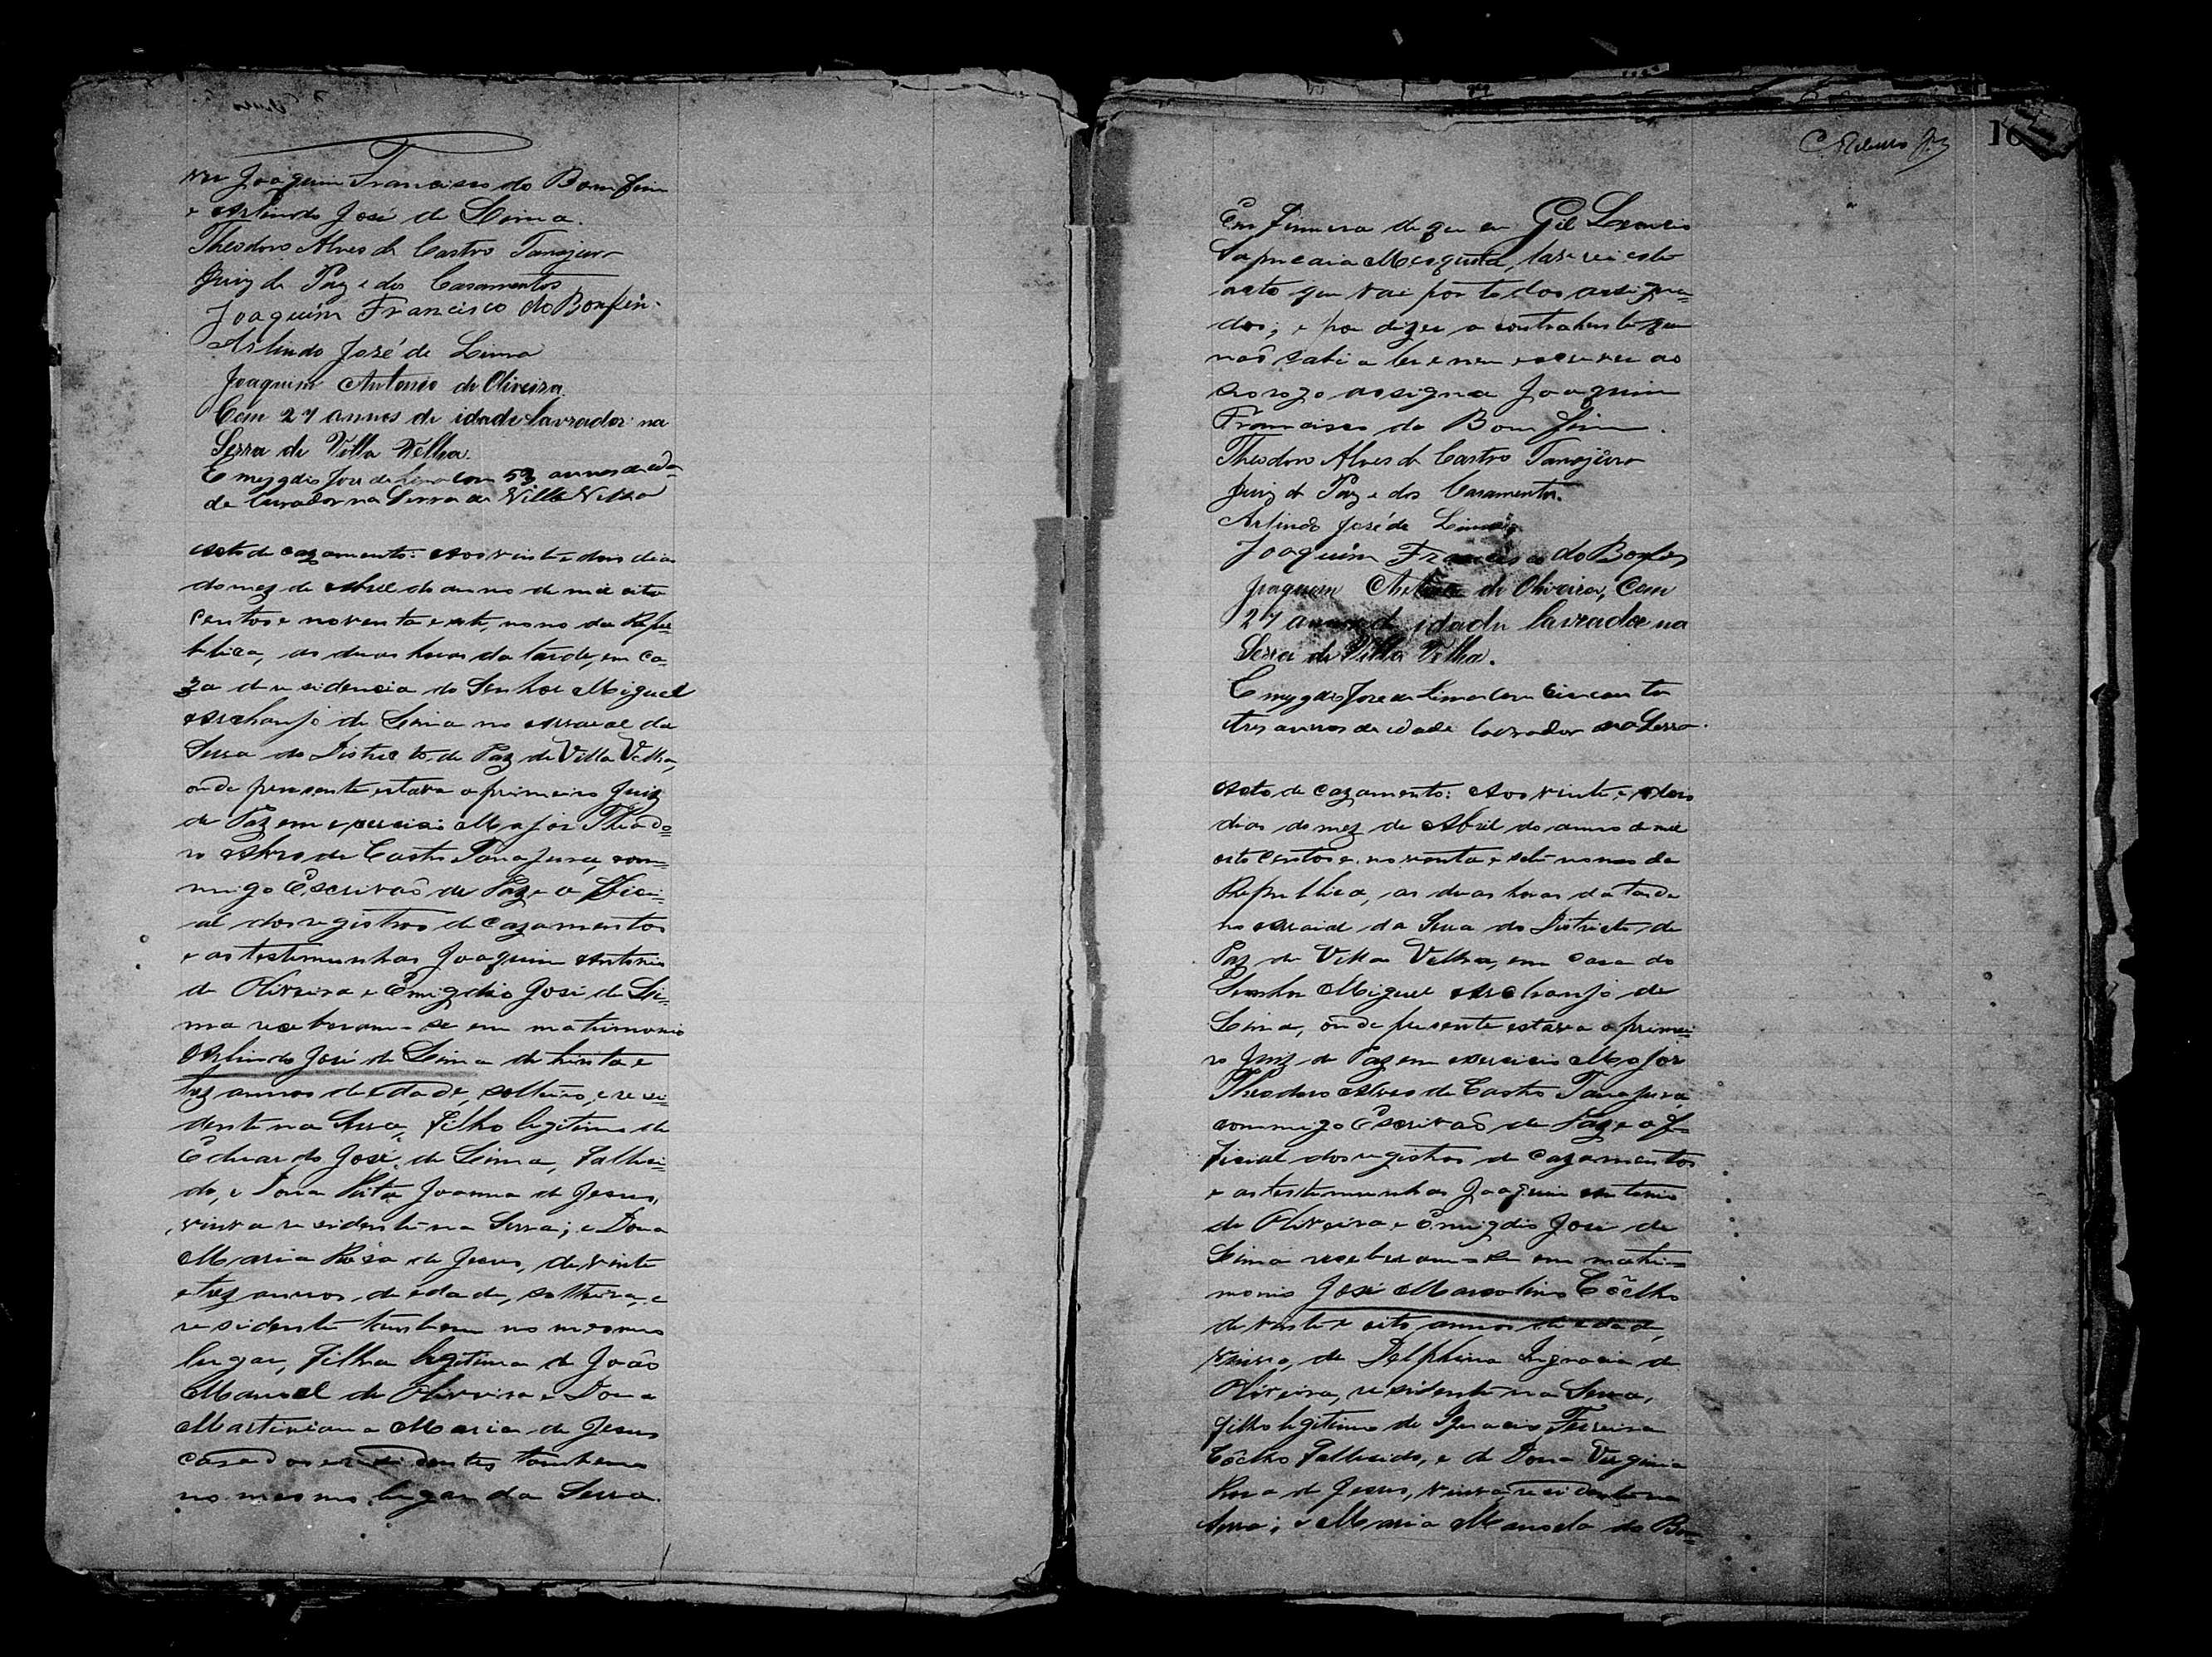 ver Joaquim Francisco do Bomfim
e Arlindo José de Lima.
Theodoro Alves de Castro Tanajura
Juiz de Paz e dos Casamentos
Joaquim Francisco do Bonfin
Arlindo José de Lima
Joaquim Antonio de Oliveira.
Com 27 annos de idade lavrador na
Serra de Villa Velha.
Emygdio Jose de Lima com 53 annos de ida
de lavrador na Serra de Villa Velha
Acto de cazamento: Aos vinte e dous dias
do mez de Abril do anno de mil oito
centos e noventa e sete, nono da Repu=
blica, as duas horas da tarde, em ca
za de residencia do Senhor Miguel
Archanjo de Lima no arraial da
Serra do Districto de Paz de Villa Velha,
onde presente estava o primeiro Juiz
de Paz em exercicio Major Theodo=
ro Alves de Castro Tanajura, com=
migo Escrivaõ de Paz e Offici=
al dos registros de cazamentos
e as testemunhas Joaquim Antonio
de Oliveira e Emigdio José de Li=
ma receberam-se em matrimonio
Arlindo José de Lima de trinta e
trez annos de edade, solteiro, e resi=
dente na Serra, filho legitimo de
Eduardo José de Lima, falleci=
do, e Dona Rita Joanna de Jesus,
viuva residente na Serra; e Dona
Maria Rosa de Jesus, de vinte
e trez annos, de edade, solteira, e
residente tambem no mesmo
lugar, filha legitima de João
Manoel de Oliveira e Dona
Martiniana Maria de Jesus
casados e residentes tambem
no mesmo lugar da Serra.
16
Em firmeza de que eu Gil
Sapucaia Mesquita, lavrei este
acto que vai por todos assigna=
dos; e por dizer a contrahente que
naõ sabia ler e nem escrever ao
seo rogo assigna Joaquim
Francisco do Bomfim.
Theodoro Alves de Castro Tanajura
Juiz de Paz e dos Casamentos.
Arlindo José de Lima
Joaquim Francisco do Bonfin
Joaquim Antonio de Oliveira, Com
27 annos de idade lavrador na
Serra de Villa Velha.
Emygdio Jose de Lima com cincoenta
tres annos de idade lavrador na Serra.
Acto de cazamento: Aos vinte e dous
dias do mez de Abril do anno de mil
oito centos e noventa e sete nono da
Republica, as duas horas da tarde
no arraial da Serra do Districto de
Paz de Villa Velha, em casa do
Senhor Miguel Archanjo de
Lima, onde presente estava o primei=
ro Juiz de Paz em exercicio Major
Theodoro Alves de Castro Tanajura,
commigo Escrivaõ de Paz e of=
ficial dos registros de cazamentos
e as testemunhas Joaquim Antonio
de Oliveira e Emigdio José de
Lima receberam-se em matri=
monio José Marcolino Coêlho
de vinte e oito annos de edade,
viuvo, de Delphina Ignacia de
Oliveira, residente na Serra,
filho legitimo de Ignacio Ferreira
Coêlho fallecido, e de Dona Virginia
Rosa de Jesus, viuva, residente na
Serra; e Maria Manoela do Bom=